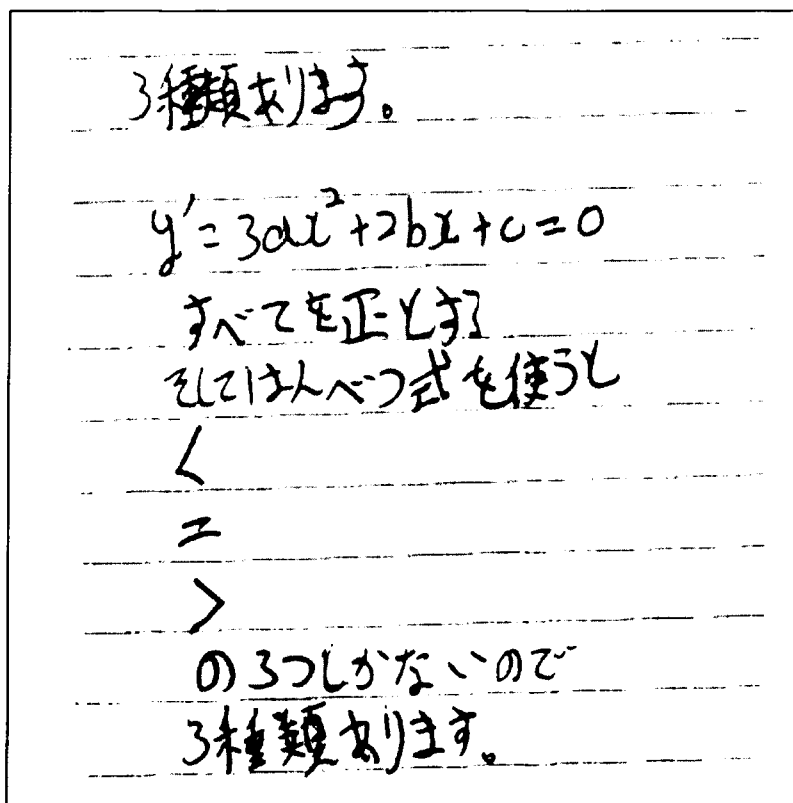 3種類あります。
y'=3ax²+2bx+c=0
すべてを正とする
そしてはんべつ式を使うと
<
=
>
の3つしかないので
3種類あります。